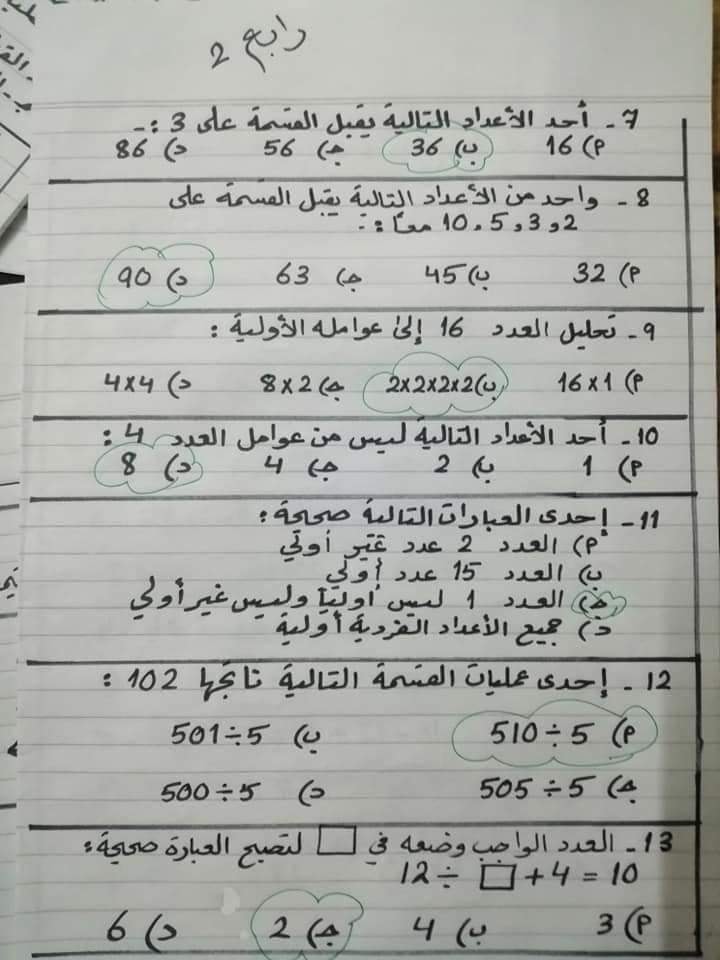 رابع 2
7 - أحد الأعداد التالية يقبل القسمة على 3 :-
أ) 16 ب) 36 جـ) 56 د) 86
8 - واحد من الأعداد التالية يقبل القسمة على
2 و 3 و 5 و 10 معاً :-
أ) 32 ب) 45 جـ) 63 د) 90
9 - تحليل العدد 16 إلى عوامله الأولية :
أ) 16×1 ب) 2×2×2×2 جـ) 8×2 د) 4×4
10 - أحد الأعداد التالية ليس من عوامل العدد 4 :
أ) 1 ب) 2 جـ) 4 د) 8
11 - إحدى العبارات التالية صحيحة :
أ) العدد 2 عدد غير أولي
ب) العدد 15 عدد أولي
جـ) العدد 1 ليس أولياً وليس غير أولي
د) جميع الأعداد الفردية أولية
12 - إحدى عمليات القسمة التالية ناتجها 102 :
أ) 510÷5 ب) 501÷5
جـ) 505÷5 د) 500÷5
13 - العدد الواجب وضعه في □ لتصبح العبارة صحيحة :
12 ÷ □ + 4 = 10
أ) 3 ب) 4 جـ) 2 د) 6